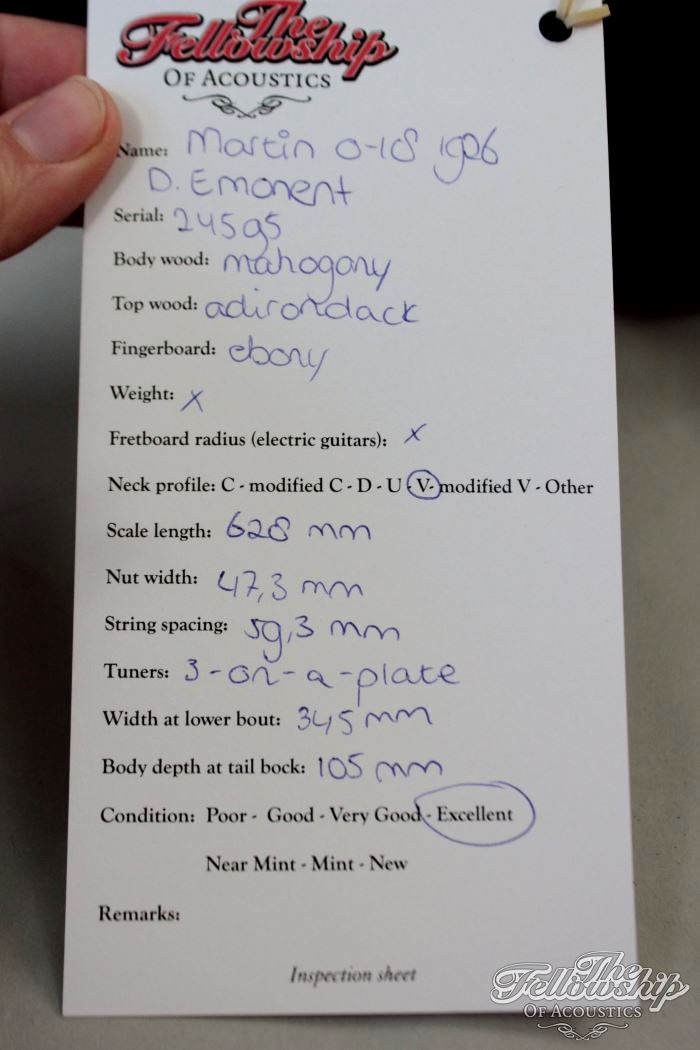 The
Fellowship
OF ACOUSTICS
Name: Martin 0-18 1926
D. Emonent
Serial: 24595
Body wood: mahogany
Top wood: adirondack
Fingerboard: ebony
Weight: x
Fretboard radius (electric guitars): x
Neck profile: C - modified C - D - U - V- modified V - Other
Scale length: 628 mm
Nut width: 47,3 mm
String spacing: 59,3 mm
Tuners: 3-on-a-plate
Width at lower bout: 345 mm
Body depth at tail bock: 105 mm
Condition: Poor - Good - Very Good - Excellent
Near Mint - Mint - New
Remarks:
Inspection sheet
The
Fellowship
OF ACOUSTICS